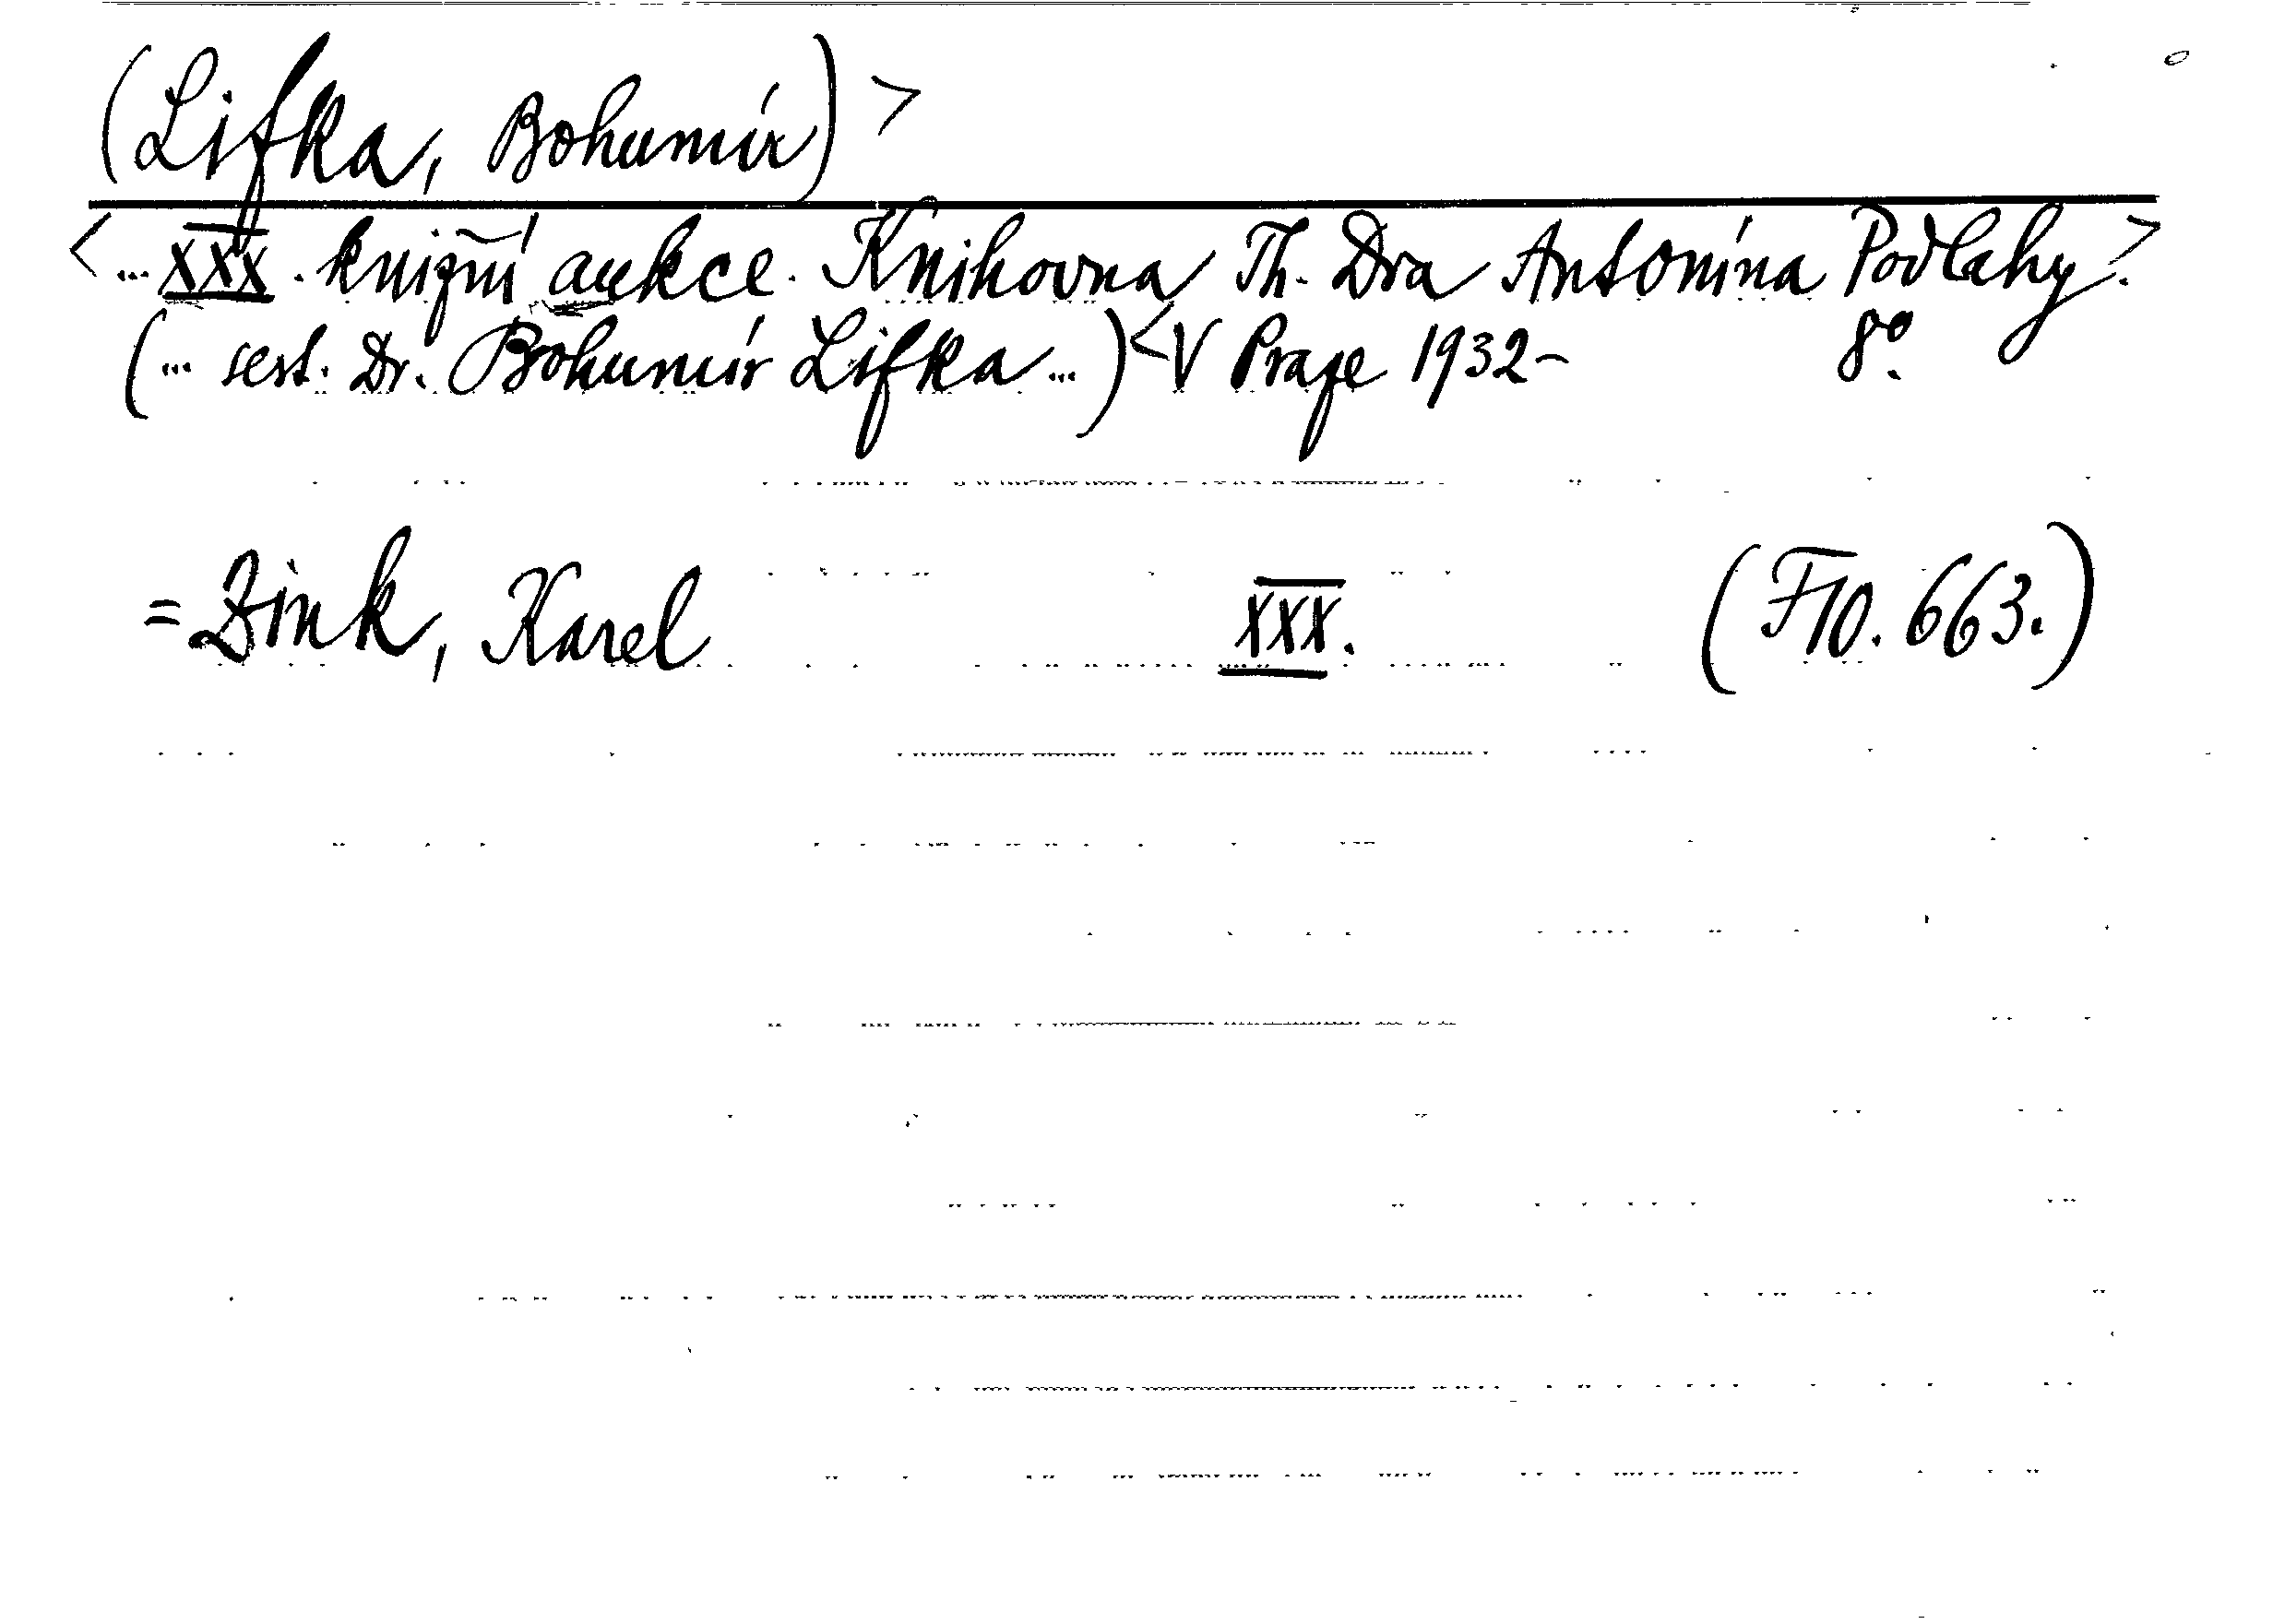 (Lifka, Bohumír) >
<... XXX. knižní aukce. Knihovna Th. Dra Antonína Podlahy.>
(... sest. Dr. Bohumír Lifka ...) < V Praze 1932 - 8°.
= Zink, Karel XXX. (F10.663.)